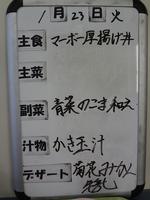 1月23日火
主食 マーボー厚揚げ丼
主菜
副菜 青菜のごま和え
汁物 かき玉汁
デザート 菊花みかん